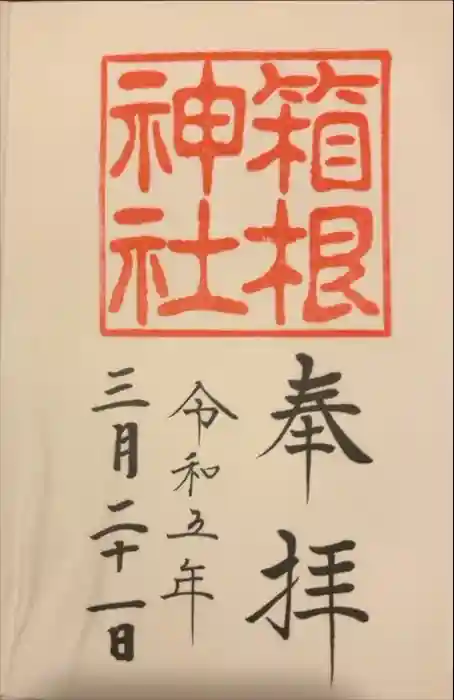 箱根
神社
奉拝
令和五年
三月二十一日